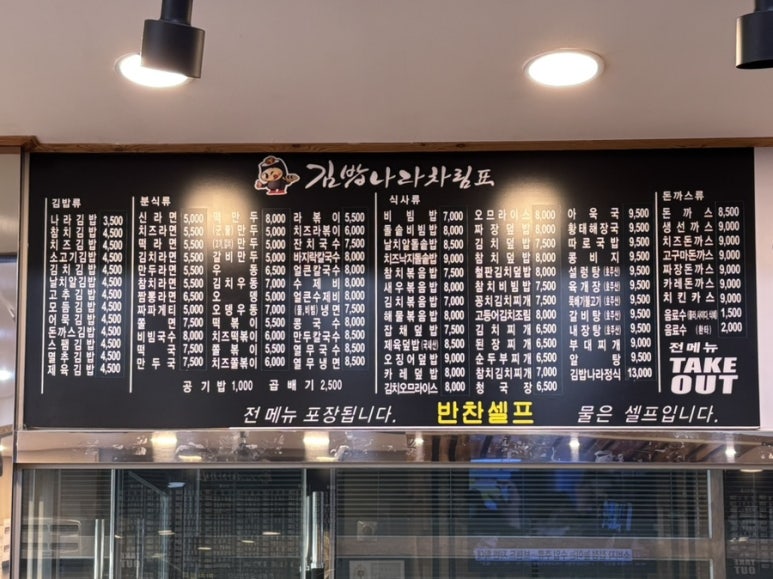 김밥나라차림표
김밥류
나라김밥 3,500
참치김밥 4,500
치즈김밥 4,500
소고기김밥 4,500
김치김밥 4,500
날치알김밥 4,500
고추김밥 4,500
모듬김밥 4,500
어묵김밥 4,500
돈까스김밥 4,500
스팸김밥 4,500
열추김밥 4,500
제육김밥 4,500
분식류
신라면 5,000
치즈라면 5,500
떡라면 5,500
김치라면 5,500
만두라면 5,500
참치라면 5,500
짬뽕라면 6,500
짜파게티 5,000
쫄면 7,000
비빔국수 7,000
떡국 7,500
만두국 7,500
떡만두 8,000
갈비만두
우동 6,500
김치우동 7,000
오뎅
오뎅우동 7,000
떡볶이 5,500
치즈떡볶이 6,000
쫄볶이
치즈쫄볶이
라볶이 5,500
치즈라볶이 6,000
잔치국수 7,500
바지락칼국수 8,000
얼큰칼국수 8,000
수제비 8,000
얼큰수제비 8,000
콩국수 8,000
만두칼국수 8,500
열무국수 8,500
열무냉면 8,500
공기밥 1,000 곱배기 2,500
식사류
비빔밥 7,000
돌솥비빔밥 8,000
날치알돌솥밥 9,000
치즈낙지돌솥밥 9,000
참치볶음밥 8,000
새우볶음밥 8,000
김치볶음밥 8,000
해물볶음밥 8,000
잡채덮밥 7,500
제육덮밥 8,500
오징어덮밥 9,000
카레덮밥 8,000
김치오므라이스 8,000
오므라이스 8,000
짜장덮밥 8,000
김치덮밥 7,500
참치덮밥 7,500
철판김치덮밥 8,000
참치비빔밥 7,500
꽁치김치찌개
고등어김치조림 8,000
김치찌개 6,500
된장찌개 6,500
순두부찌개 6,500
참치김치찌개 7,000
청국장 6,500
아욱국 9,500
황태해장국 9,500
따로국밥 9,500
콩비지 9,500
설렁탕 9,500
육개장 9,500
뚝배기불고기 9,500
갈비탕 9,500
내장탕 9,500
부대찌개 9,500
알탕 9,500
김밥나라정식 13,000
돈까스류
돈까스 8,500
생선까스 9,000
치즈돈까스 9,000
고구마돈까스 9,000
짜장돈까스 9,000
카레돈까스 9,000
치킨까스 9,000
음료수 1,500
음료수 (환타) 2,000
전메뉴
TAKE
OUT
전 메뉴 포장됩니다. 반찬셀프 물은 셀프입니다.